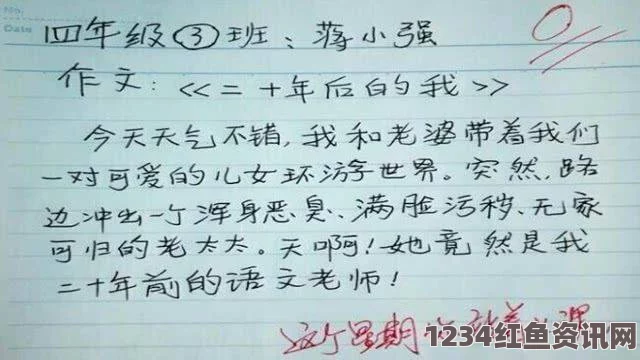 No:
Date
四年级③班：蒋小强
0
作文：<<二十年后的我>>
今天天气不错,我和老婆带着我们
一对可爱的儿女环游世界。突然,路
边冲出一个浑身恶臭、满脸污秽、无家
可归的老太太。天啊！她竟然是我
二十年前的语文老师！
这个星期
1234红鱼资讯网